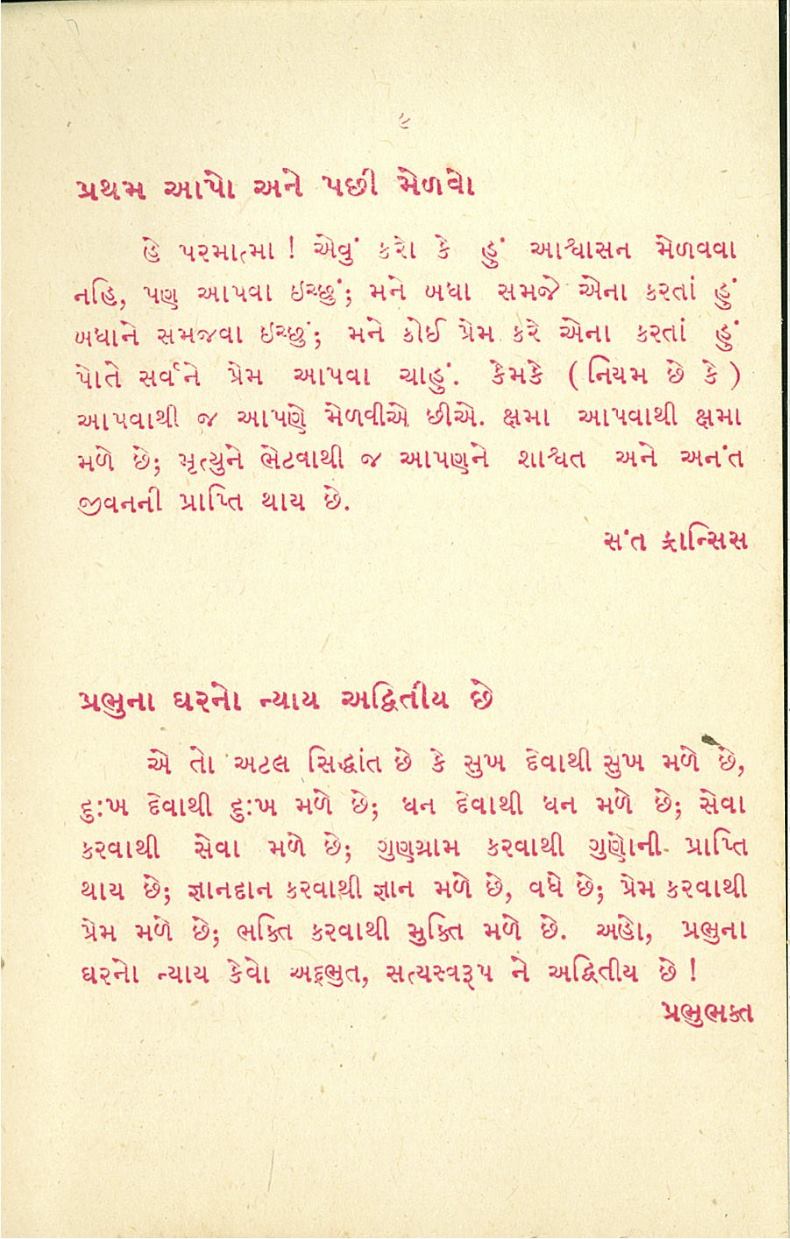 ૯
પ્રથમ આપો અને પછી મેળવો
હે પરમાત્મા ! એવું કરો કે હું આશ્વાસન મેળવવા
નહિ, પણ આપવા ઇચ્છું; મને બધા સમજે એના કરતાં હું
બધાને સમજવા ઇચ્છું; મને કોઈ પ્રેમ કરે એના કરતાં હું
પોતે સર્વને પ્રેમ આપવા ચાહું. કેમકે ( નિયમ છે કે )
આપવાથી જ આપણે મેળવીએ છીએ. ક્ષમા આપવાથી ક્ષમા
મળે છે; મૃત્યુને ભેટવાથી જ આપણને શાશ્વત અને અનંત
જીવનની પ્રાપ્તિ થાય છે.
સંત ફ્રાન્સિસ
પ્રભુના ઘરનો ન્યાય અદ્વિતીય છે
એ તો અટલ સિદ્ધાંત છે કે સુખ દેવાથી સુખ મળે છે,
દુઃખ દેવાથી દુઃખ મળે છે; ધન દેવાથી ધન મળે છે; સેવા
કરવાથી સેવા મળે છે; ગુણગ્રામ કરવાથી ગુણોની પ્રાપ્તિ
થાય છે; જ્ઞાનદાન કરવાથી જ્ઞાન મળે છે, વધે છે; પ્રેમ કરવાથી
પ્રેમ મળે છે; ભક્તિ કરવાથી મુક્તિ મળે છે. અહો, પ્રભુના
ઘરનો ન્યાય કેવો અદ્દભુત, સત્યસ્વરૂપ ને અદ્વિતીય છે !
પ્રભુભક્ત